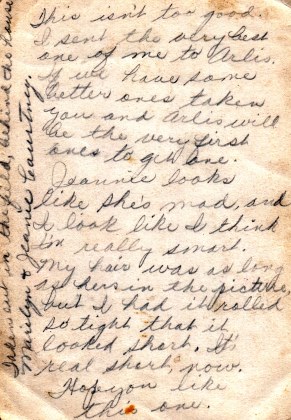 This isn't too good.
I sent the very best
one of me to Arlis.
If we have some
better ones taken
you and Arlis will
be the very first
ones to get one.
Jeannie looks
like she's mad, and
I look like I think
I'm really smart.
My hair was as long
as hers in the picture,
but I had it rolled
so tight that it
looked short. It's
real short, now.
Hope you like
this one.
Taken out in the field, behind the house
Marilyn & Jeanie Courtney